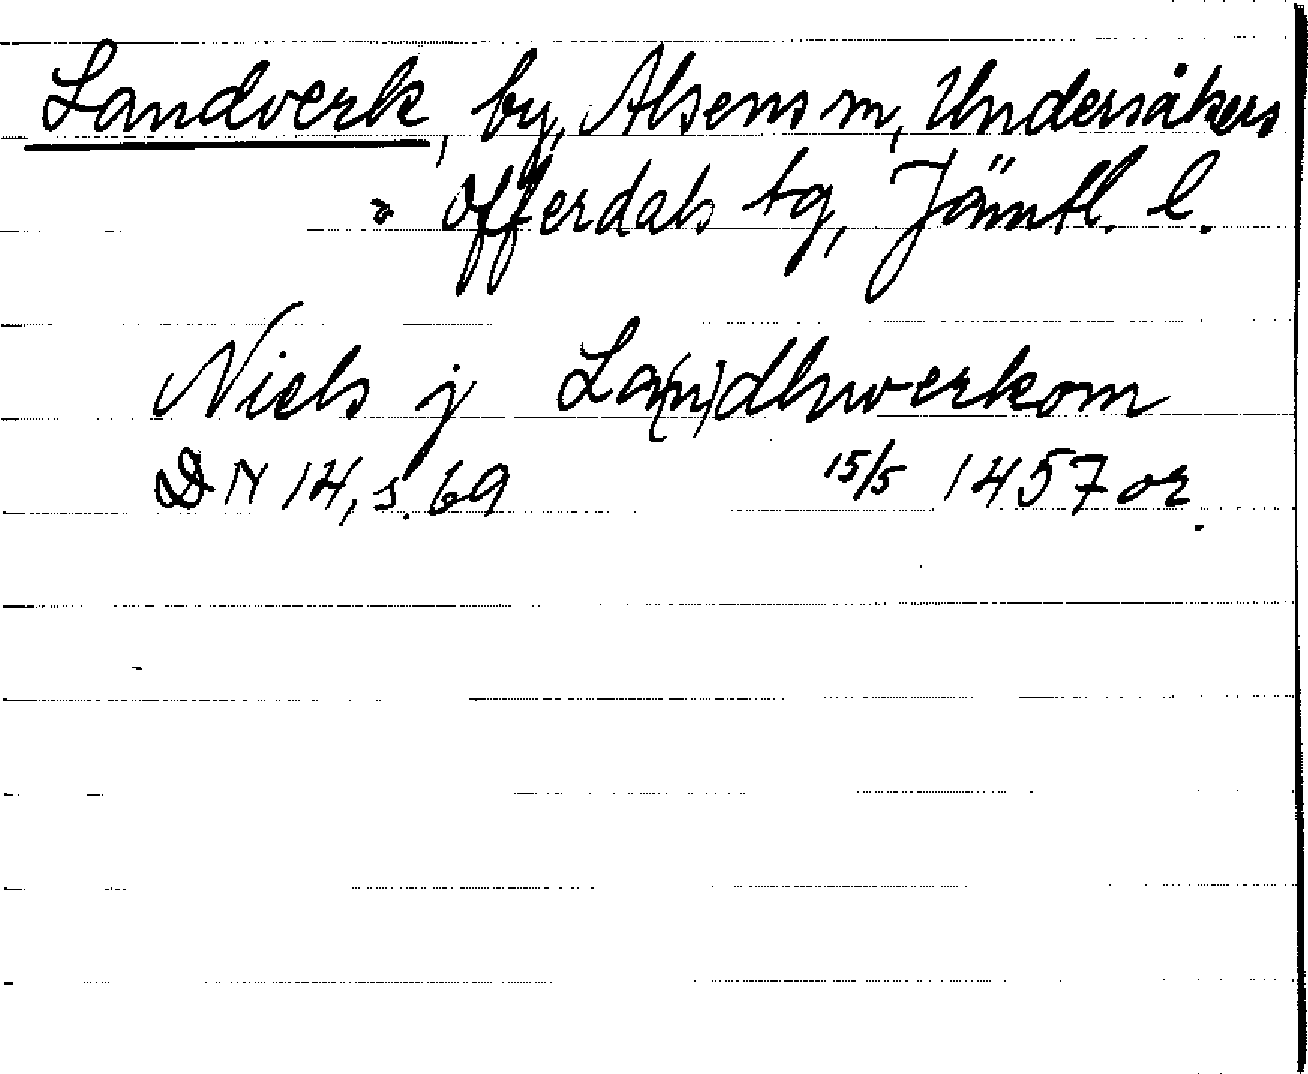 Landverk, by, Alsens sn, Undersåkers
o Offerdals tg, Jämtl. l.
Niels j La(n)dhwerkom
DN 14, s. 69 15/5 1457 or.